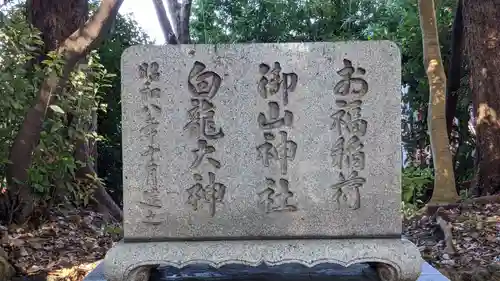 お福稲荷
御山神社
白龍大神
昭和八年十月建之